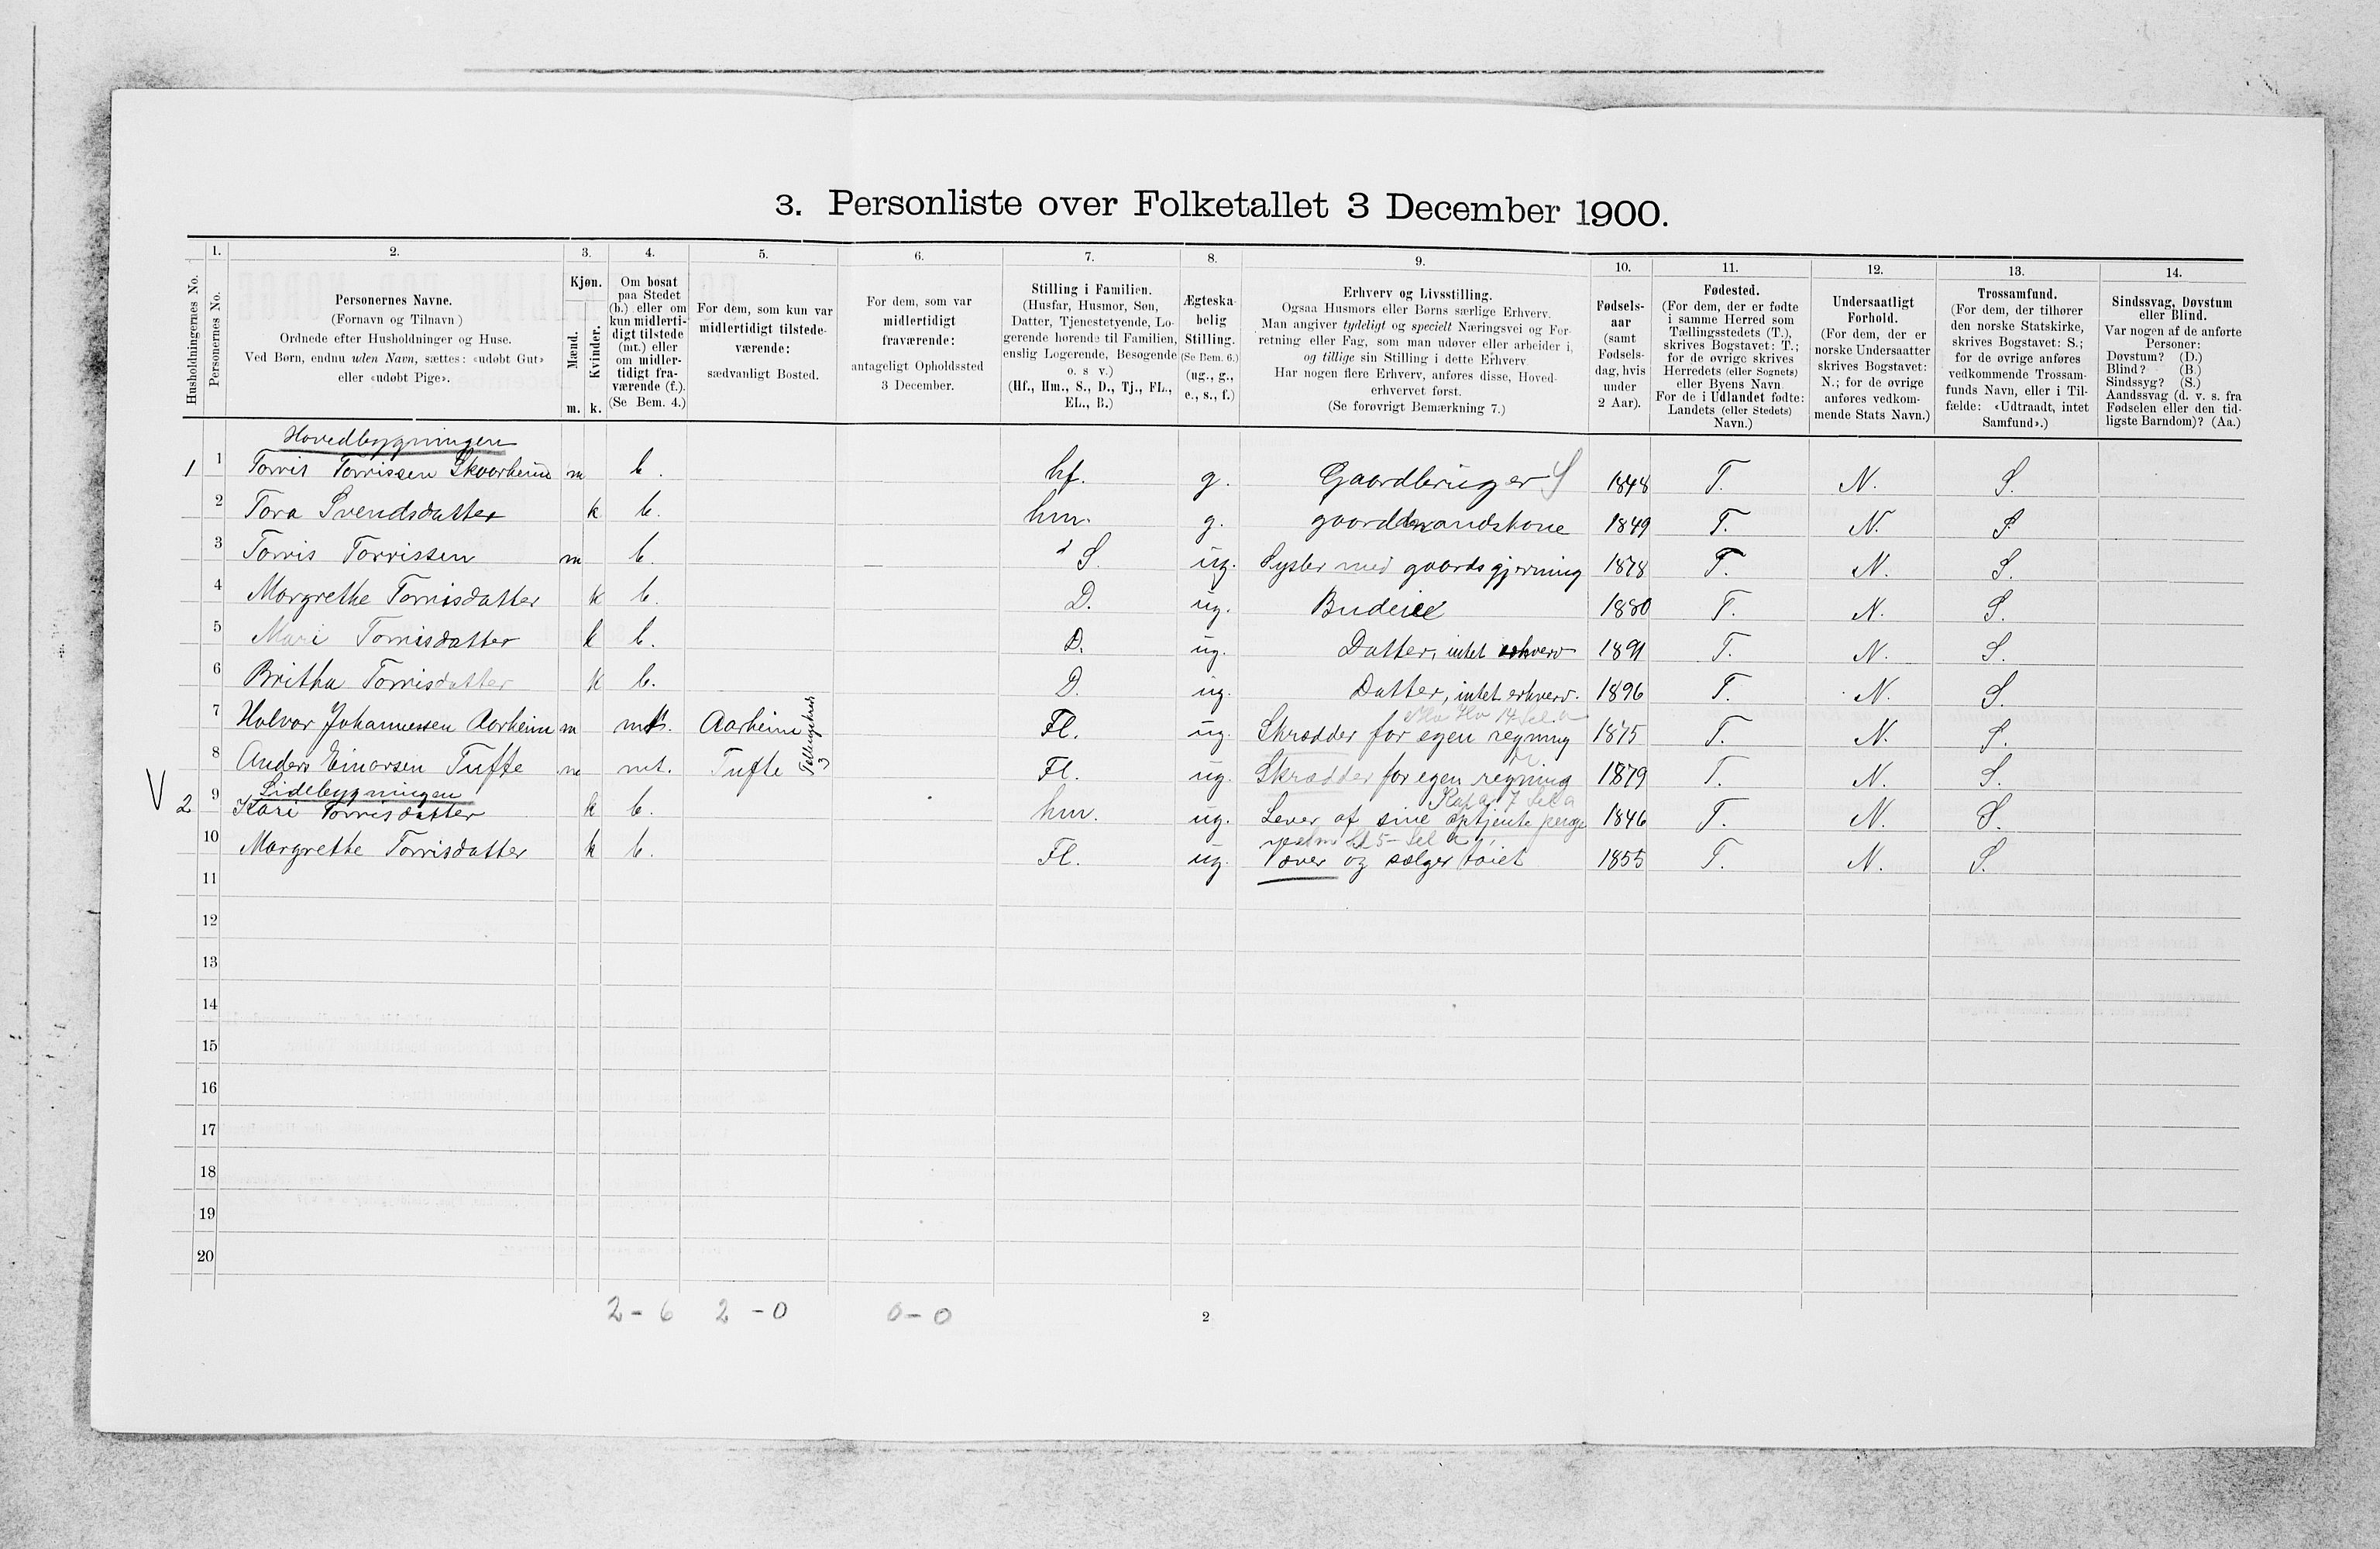 3. Personliste over Folketallet 3 December 1900.
Husholdningernes No.
1.
Personernes No.
2.
Personernes Navne.
(Fornavn og Tilnavn)
Ordnede efter Husholdninger og Huse.
Ved Børn, endnu uden Navn, sættes: «udøbt Gut»
eller «udøbt Pige».
3.
Kjøn.
Mænd.
Kvinder.
m. k.
4.
Om bosat
paa Stedet
(b.) eller om
kun midlerti-
digt tilstede
(mt.) eller
om midler-
tidigt fra-
værende (f.).
(Se Bem. 4.)
5.
For dem, som kun var
midlertidigt tilstede-
værende:
sædvanligt Bosted.
6.
For dem, som var
midlertidigt
fraværende:
antageligt Opholdssted
3 December.
7.
Stilling i Familien.
(Husfar, Husmor, Søn,
Datter, Tjenestetyende, Lo-
gerende hørende til Familien,
enslig Logerende, Besøgende
o. s v.)
(Hf., Hm., S., D., Tj., FL.,
EL., B.)
8.
Ægteska-
belig
Stilling.
(Se Bem. 6.)
(ug., g.,
e., s., f.)
9.
Erhverv og Livsstilling.
Ogsaa Husmors eller Børns særlige Erhverv.
Man angiver tydeligt og specielt Næringsvei og For-
retning eller Fag, som man udøver eller arbeider i,
og tillige sin Stilling i dette Erhverv.
Har nogen flere Erhverv, anføres disse, Hoved-
erhvervet først.
(Se forøvrigt Bemærkning 7.)
10.
Fødsels-
aar
(samt
Fødsels-
dag, hvis
under
2 Aar).
11.
Fødested.
(For dem, der er fødte
i samme Herred som
Tællingsstedets (T.),
skrives Bogstavet: T.;
for de øvrige skrives
Herredets (eller Sognets)
eller Byens Navn.
For de i Udlandet fødte:
Landets (eller Stedets)
Navn.)
12.
Undersaatligt
Forhold.
(For dem, der er
norske Undersaatter
skrives Bogstavet:
N.; for de øvrige
anføres vedkom-
mende Stats Navn.)
13.
Trossamfund.
(For dem, der tilhører
den norske Statskirke,
skrives Bogstavet: S.;
for de øvrige anføres
vedkommende Trossam-
funds Navn, eller i Til-
fælde: «Udtraadt, intet
Samfund».)
14.
Sindssvag, Døvstum
eller Blind.
Var nogen af de anførte
Personer:
Døvstum? (D.)
Blind? (B.)
Sindssyg? (S.)
Aandssvag (d. v. s. fra
Fødselen eller den tid-
ligste Barndom)? (Aa.)
Hovedbygningen
1 1 Torris Torrissen Skaarheim m b. hf. g. Gaardbruger S 1848 T. N. S.
2 Tora Svendsdatter k b. hm. g. gaardmandskone 1849 T. N. S
3 Torris Torrissen m b. S. ug. Sysler med gaardsgjerning 1878 T. N. S.
4 Margrethe Torrisdatter k b. D. ug. Budeie 1880 T. N. S.
5 Mari Torrisdatter k b. D. ug. Datter, intet erhverv 1891 T. N. S.
6 Britha Torrisdatter k b. D. ug. Datter, intet erhverv. 1896 T. N. S.
7 Halvor Johannessen Aarheim m mt. Aarheim Fl. ug. Skrædder for egen regning 1875 T. N. S.
8 Anders Einarsen Tufte m mt. Tufte Fl. ug. Skrædder for egen regning 1879 T. N. S.
Sidebygningen
V 2 9 Kari Torrisdatter k b. hm. ug. Lever af sine optjente penge 1846 T. N. S.
10 Margrethe Torrisdatter k b. Fl. ug. Væver og sælger tøiet 1855 T. N. S.
11
12
13
14
15
16
17
18
19
20
2 - 6 2 - 0 0 - 0
2